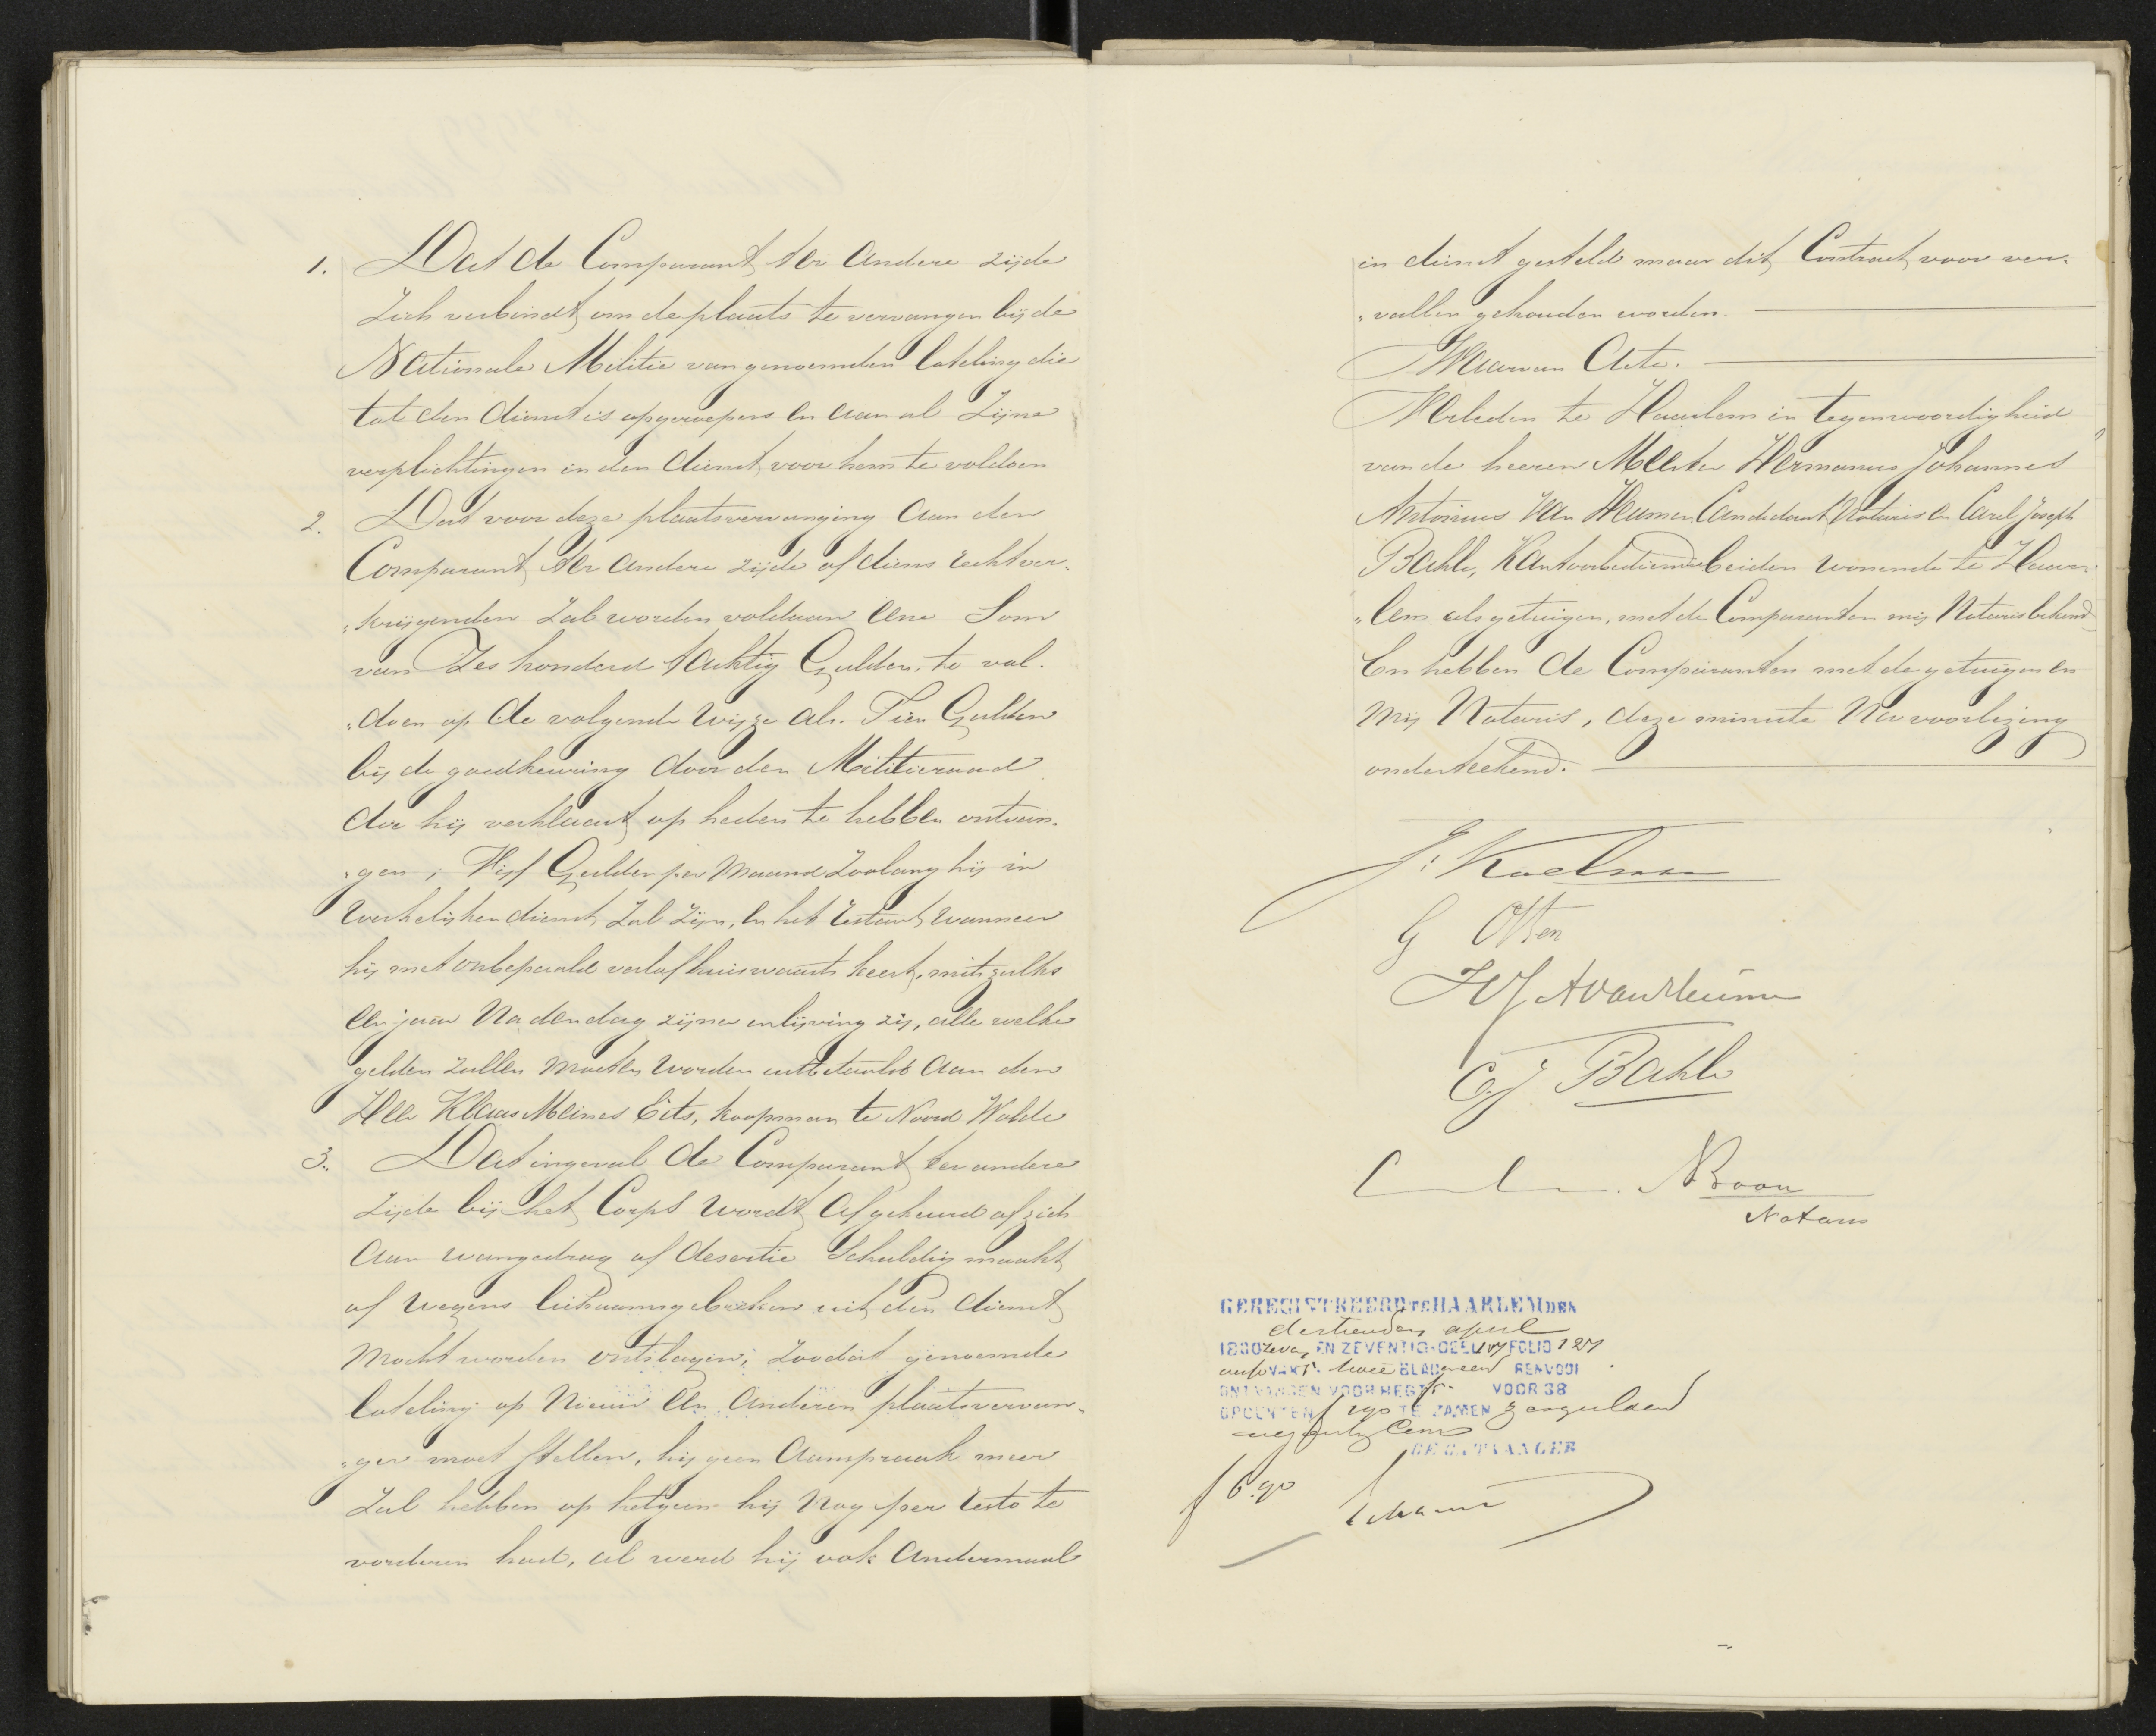 1. Dat de Comparant ter andere zijde
zich verbindt om de plaats te vervangen bij de
Nationale Militie van genoemden loteling die
tot den dienst is opgeroepen en aan al zijne
verplichtingen in den dienst voor hem te voldoen
2. Dat voor deze plaatsvervanging aan den
Comparant ter andere zijde of diens rechtver-
"krijgenden zal worden voldaan eene Som
van Zes honderd tachtig Gulden, te vol-
"doen op de volgende wijze als. Tien Gulden
bij de goedkeuring door den Militieraad
die hij verklaart op heden te hebben ontvan-
"gen, Vijf Gulden per Maand zoolang hij in
werkelijken dienst zal zijn, en het restant wanneer
hij met onbepaald verlof huiswaarts keert, mits zulks
een jaar na den dag zijner inlijving zij, alle welke
gelden zullen moeten worden uitbetaald aan den
Heer Klaas Meines Eits, koopman te Noord Wolde
3. Dat ingeval de Comparant ter andere
zijde bij het Corps wordt afgekeurd of zich
aan wangedrag of desertie Schuldig maakt
of wegens lichaamsgebreken uit den dienst
mocht worden ontslagen, zoodat genoemde
loteling op Nieuw een anderen plaatsvervan-
"ger moet stellen, hij geen aanspraak meer
zal hebben op hetgeen hij nog per resto te
vorderen had, al werd hij ook andermaal
in dienst gesteld maar dit Contract voor ver-
"vallen gehouden worden.
Waarvan Acte.
Verleden te Haarlem in tegenwoordigheid
van de heeren Meester Hermanus Johannes
Antonius Van Heumen Candidaat Notaris en Carel Joseph
Bahle, Kantoorbediende beiden wonende te Haar-
"lem als getuigen, met de Comparanten mij Notaris bekend
En hebben de Comparanten met de getuigen en
mij Notaris, deze minute na voorlezing
onderteekend.
J: Koelman
G Otten
HJAvanHeumen
C.J. Bahle
Boon
Notaris
GEREGISTREERD TE HAARLEM DEN
dertienden april
1800 zeven EN ZEVENTIG DEEL 107 FOLIO 127
VAK 5. twee BLAD geen RENVOOI
ONTVANGEN VOOR REGT f VOOR 38
OPCENTEN f 190 TE ZAMEN zes gulden
negentig Cent
DE ONTVANGER
f 6.90